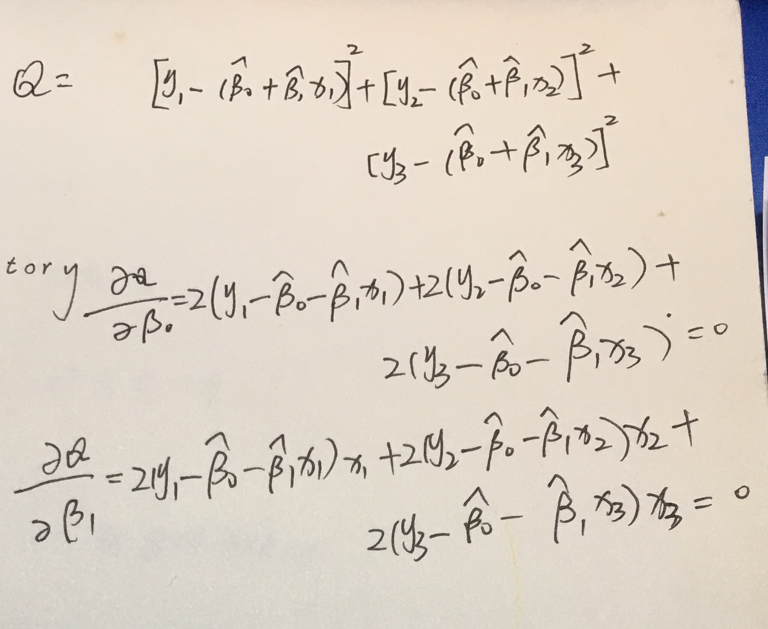 Q = [y₁ - (β̂₀ + β̂₁x₁)]² + [y₂ - (β̂₀ + β̂₁x₂)]² +
[y₃ - (β̂₀ + β̂₁x₃)]²
tory ∂Q/∂β₀ = 2(y₁ - β̂₀ - β̂₁x₁) + 2(y₂ - β̂₀ - β̂₁x₂) +
2(y₃ - β̂₀ - β̂₁x₃) = 0
∂Q/∂β₁ = 2(y₁ - β̂₀ - β̂₁x₁)x₁ + 2(y₂ - β̂₀ - β̂₁x₂)x₂ +
2(y₃ - β̂₀ - β̂₁x₃)x₃ = 0